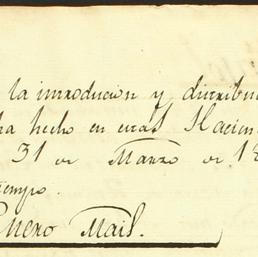 la introducion y distribu
ha hecho en estas Hacien
31 de Marzo de 18
tiempo.
Mais.